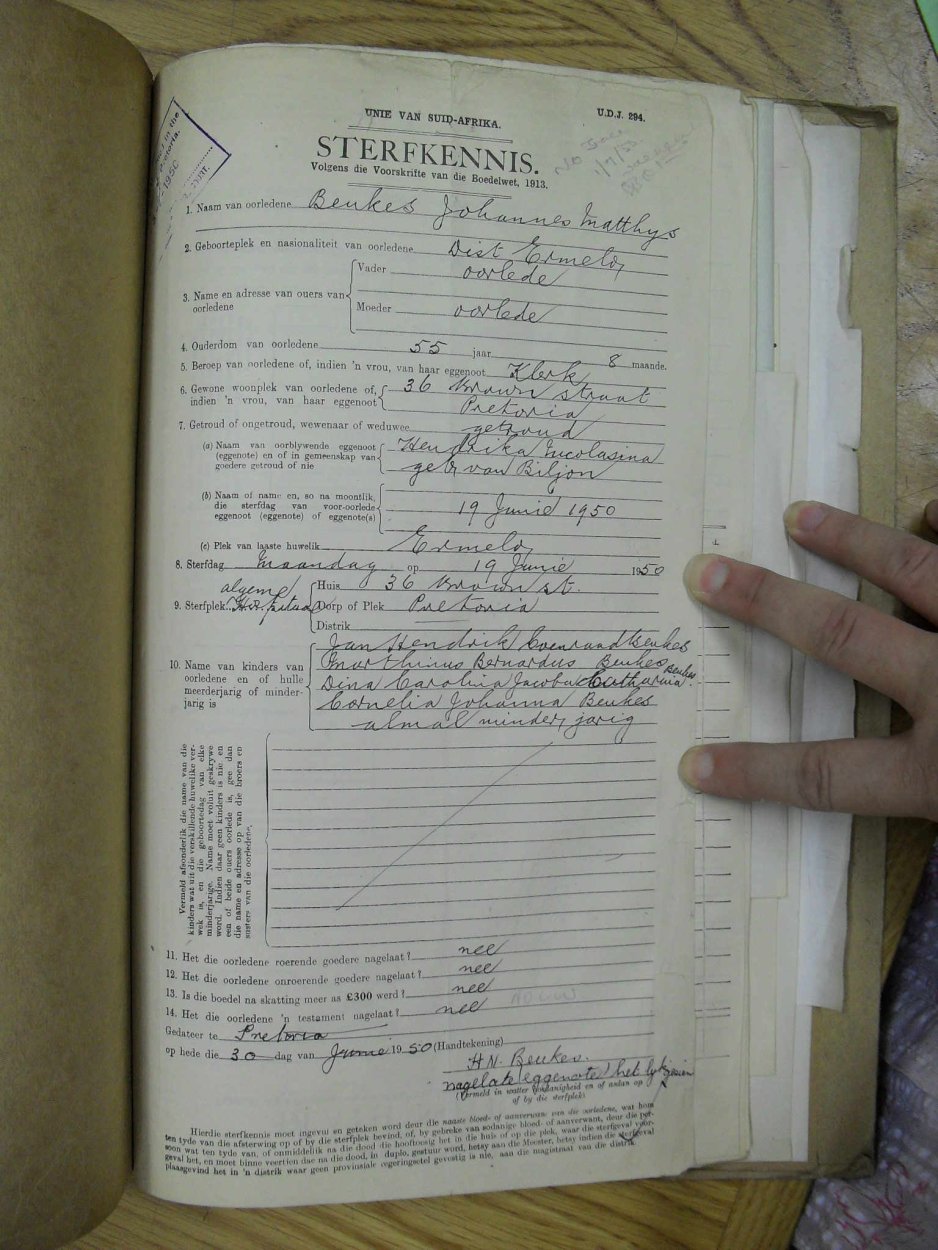 UNIE VAN SUID-AFRIKA.
U.D.J. 294.
STERFKENNIS.
Volgens die Voorskrifte van die Boedelwet, 1913.
1. Naam van oorledene Beukes Johannes Matthys
2. Geboorteplek en nasionaliteit van oorledene Dist Ermelo,
3. Name en adresse van ouers van oorledene
Vader oorlede
Moeder oorlede
4. Ouderdom van oorledene 55 jaar 8 maande.
5. Beroep van oorledene of, indien 'n vrou, van haar eggenoot Klerk
6. Gewone woonplek van oorledene of, 36 Brown straat
indien 'n vrou, van haar eggenoot Pretoria
7. Getroud of ongetroud, wewenaar of weduwee getroud
(a) Naam van oorblywende eggenoot Hendrika Nicolasina
(eggenote) en of in gemeenskap van
goedere getroud of nie geb van Biljon
(b) Naam of name en, so na moontlik,
die sterfdag van voor-oorlede 19 Junie 1950
eggenoot (eggenote) of eggenote(s)
(c) Plek van laaste huwelik Ermelo,
8. Sterfdag Maandag op 19 Junie 1950
algeme
9. Sterfplek Hospitaal
Huis 36 Brown st.
Dorp of Plek Pretoria
Distrik
10. Name van kinders van
oorledene en of hulle
meerderjarig of minder-
jarig is
Jan Hendrik Coenraad Beukes
Marthinus Bernardus Beukes
Dina Carolina Jacoba Catharina Beukes
Cornelia Johanna Beukes
almal minder jarig
Vermeld afsonderlik die name van die
kinders wat uit die verskillende huwelike ver-
wek is, en die geboortedag van elke
minderjarige. Name moet voluit geskrywe
word. Indien daar geen kinders is nie en
een of beide ouers oorlede is, gee dan
die name en adresse op van die broers en
susters van die oorledene.
11. Het die oorledene roerende goedere nagelaat? nee
12. Het die oorledene onroerende goedere nagelaat? nee
13. Is die boedel na skatting meer as £300 werd? nee
14. Het die oorledene 'n testament nagelaat? nee
Gedateer te Pretoria
op hede die 30 dag van Junie 1950 (Handtekening)
H N. Beukes.
nagelate eggenote) het lyk gesien
(Vermeld in watter hoedanigheid en of aldan op
of by die sterfplek)
Hierdie sterfkennis moet ingevul en geteken word deur die naaste bloed- of aanverwant van die oorledene, wat hom
ten tyde van die afsterwing op of by die sterfplek bevind, of, by gebreke van sodanige bloed- of aanverwant, deur die per-
soon wat ten tyde van, of onmiddellik na die dood die hooftoesig het in die huis of op die plek, waar die sterfgeval voor-
geval het, en moet binne veertien dae na die dood, in duplo, gestuur word, hetsy aan die Meester, hetsy indien die sterfgeval
plaasgevind het in 'n distrik waar geen provinsiale regeringsetel gevestig is nie, aan die magistraat van die distrik.